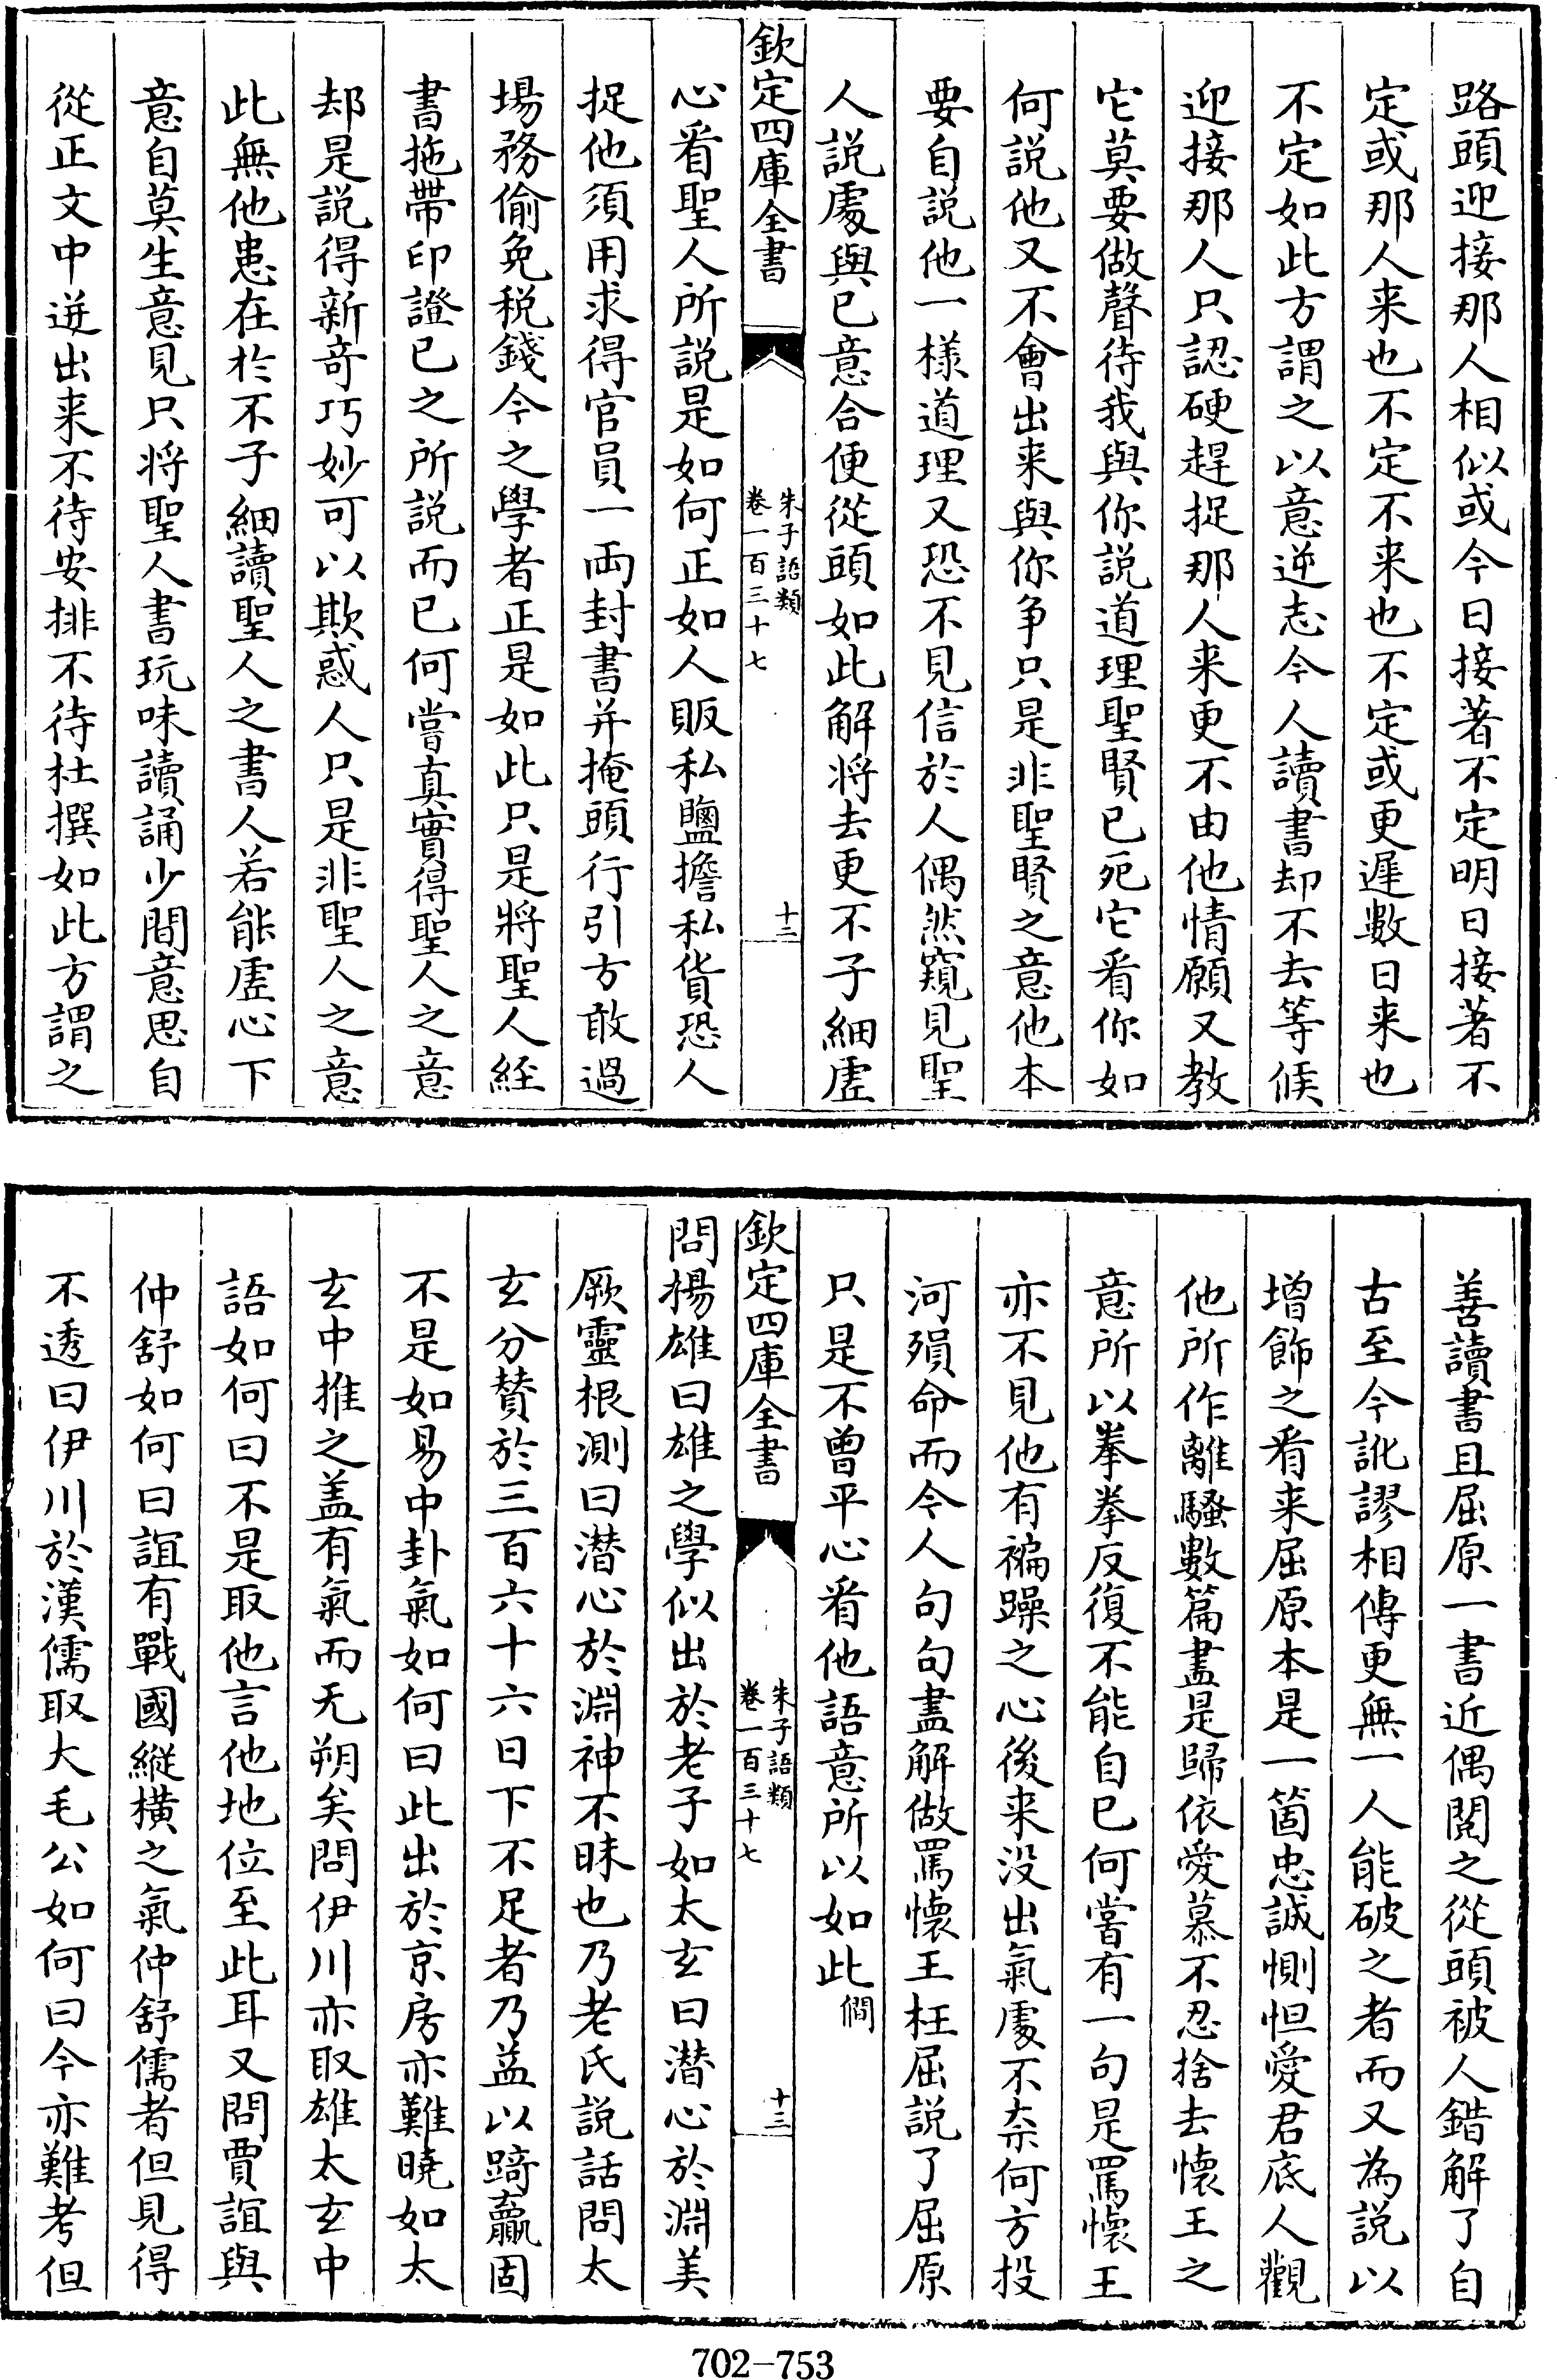 路頭迎接那人相似或今日接著不定明日接著不
定或那人来也不定不来也不定或更遲數日来也
不定如此方謂之以意逆志今人讀書却不去等候
迎接那人只認硬趕捉那人来更不由他情願又教
它莫要做聲待我與你説道理聖賢已死它看你如
何説他又不會出来與你争只是非聖賢之意他本
要自説他一樣道理又恐不見信於人偶然窺見聖
人説處與已意合便從頭如此解将去更不子細虚
欽定四庫全書
朱子語類
卷一百三十七
十二
心看聖人所説是如何正如人販私鹽擔私貨恐人
捉他須用求得官員一両封書并掩頭行引方敢過
場務偷免税錢今之學者正是如此只是將聖人経
書拖帶印證已之所説而已何嘗真實得聖人之意
却是説得新竒巧妙可以欺惑人只是非聖人之意
此無他患在於不子細讀聖人之書人若能虚心下
意自莫生意見只将聖人書玩味讀誦少間意思自
從正文中迸出来不待安排不待杜撰如此方謂之
善讀書且屈原一書近偶閱之從頭被人錯解了自
古至今訛謬相傳更無一人能破之者而又為説以
增飾之看来屈原本是一箇忠誠惻怛愛君底人觀
他所作離騷數篇盡是歸依愛慕不忍捨去懷王之
意所以拳拳反復不能自已何嘗有一句是罵懷王
亦不見他有褊躁之心後来没出氣處不奈何方投
河殞命而今人句句盡解做罵懷王枉屈説了屈原
只是不曾平心看他語意所以如此僩
欽定四庫全書
朱子語類
卷一百三十七
十三
問揚雄曰雄之學似出於老子如太玄曰潜心於淵美
厥靈根測曰潜心於淵神不昧也乃老氏説話問太
玄分賛於三百六十六日下不足者乃益以踦贏固
不是如易中卦氣如何曰此出於京房亦難曉如太
玄中推之盖有氣而无朔矣問伊川亦取雄太玄中
語如何曰不是取他言他地位至此耳又問賈誼與
仲舒如何曰誼有戰國縱横之氣仲舒儒者但見得
不透曰伊川於漢儒取大毛公如何曰今亦難考但
702-753